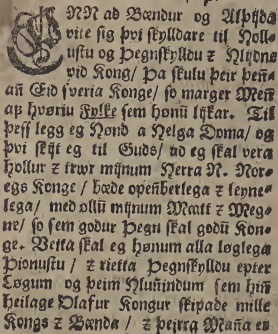 ENN ad Bændur og Alþijda
vite sig þvi skylldare til Holl-
ustu og Þegnskylldu ꝛ Hlijdnu
vid Kong/ Þa skulu þeir þeñ-
añ Eid sveria Konge/ so marger Meñ
af hvøriu Fylke sem honũ lijkar. Til
þess legg eg Hønd a Helga Doma/ og
þvi skijt eg til Guds/ ad eg skal vera
hollur ꝛ trwr mijnum Herra N. Nor-
egs Konge/ bæde openberlega ꝛ leyne-
lega/ med ollũ mijnum Mætt ꝛ Meg-
ne/ so sem godur Þegn skal godũ Kon-
ge. Vetta skal eg hønum alla løglega
Þionustu/ ꝛ rietta Þegnskylldu epter
Løgum og þeim Hluñindum sem hiñ
heilage Olafur Kongur skipade mille
Kongs ꝛ Bænda/ ꝛ þeirra Maña er